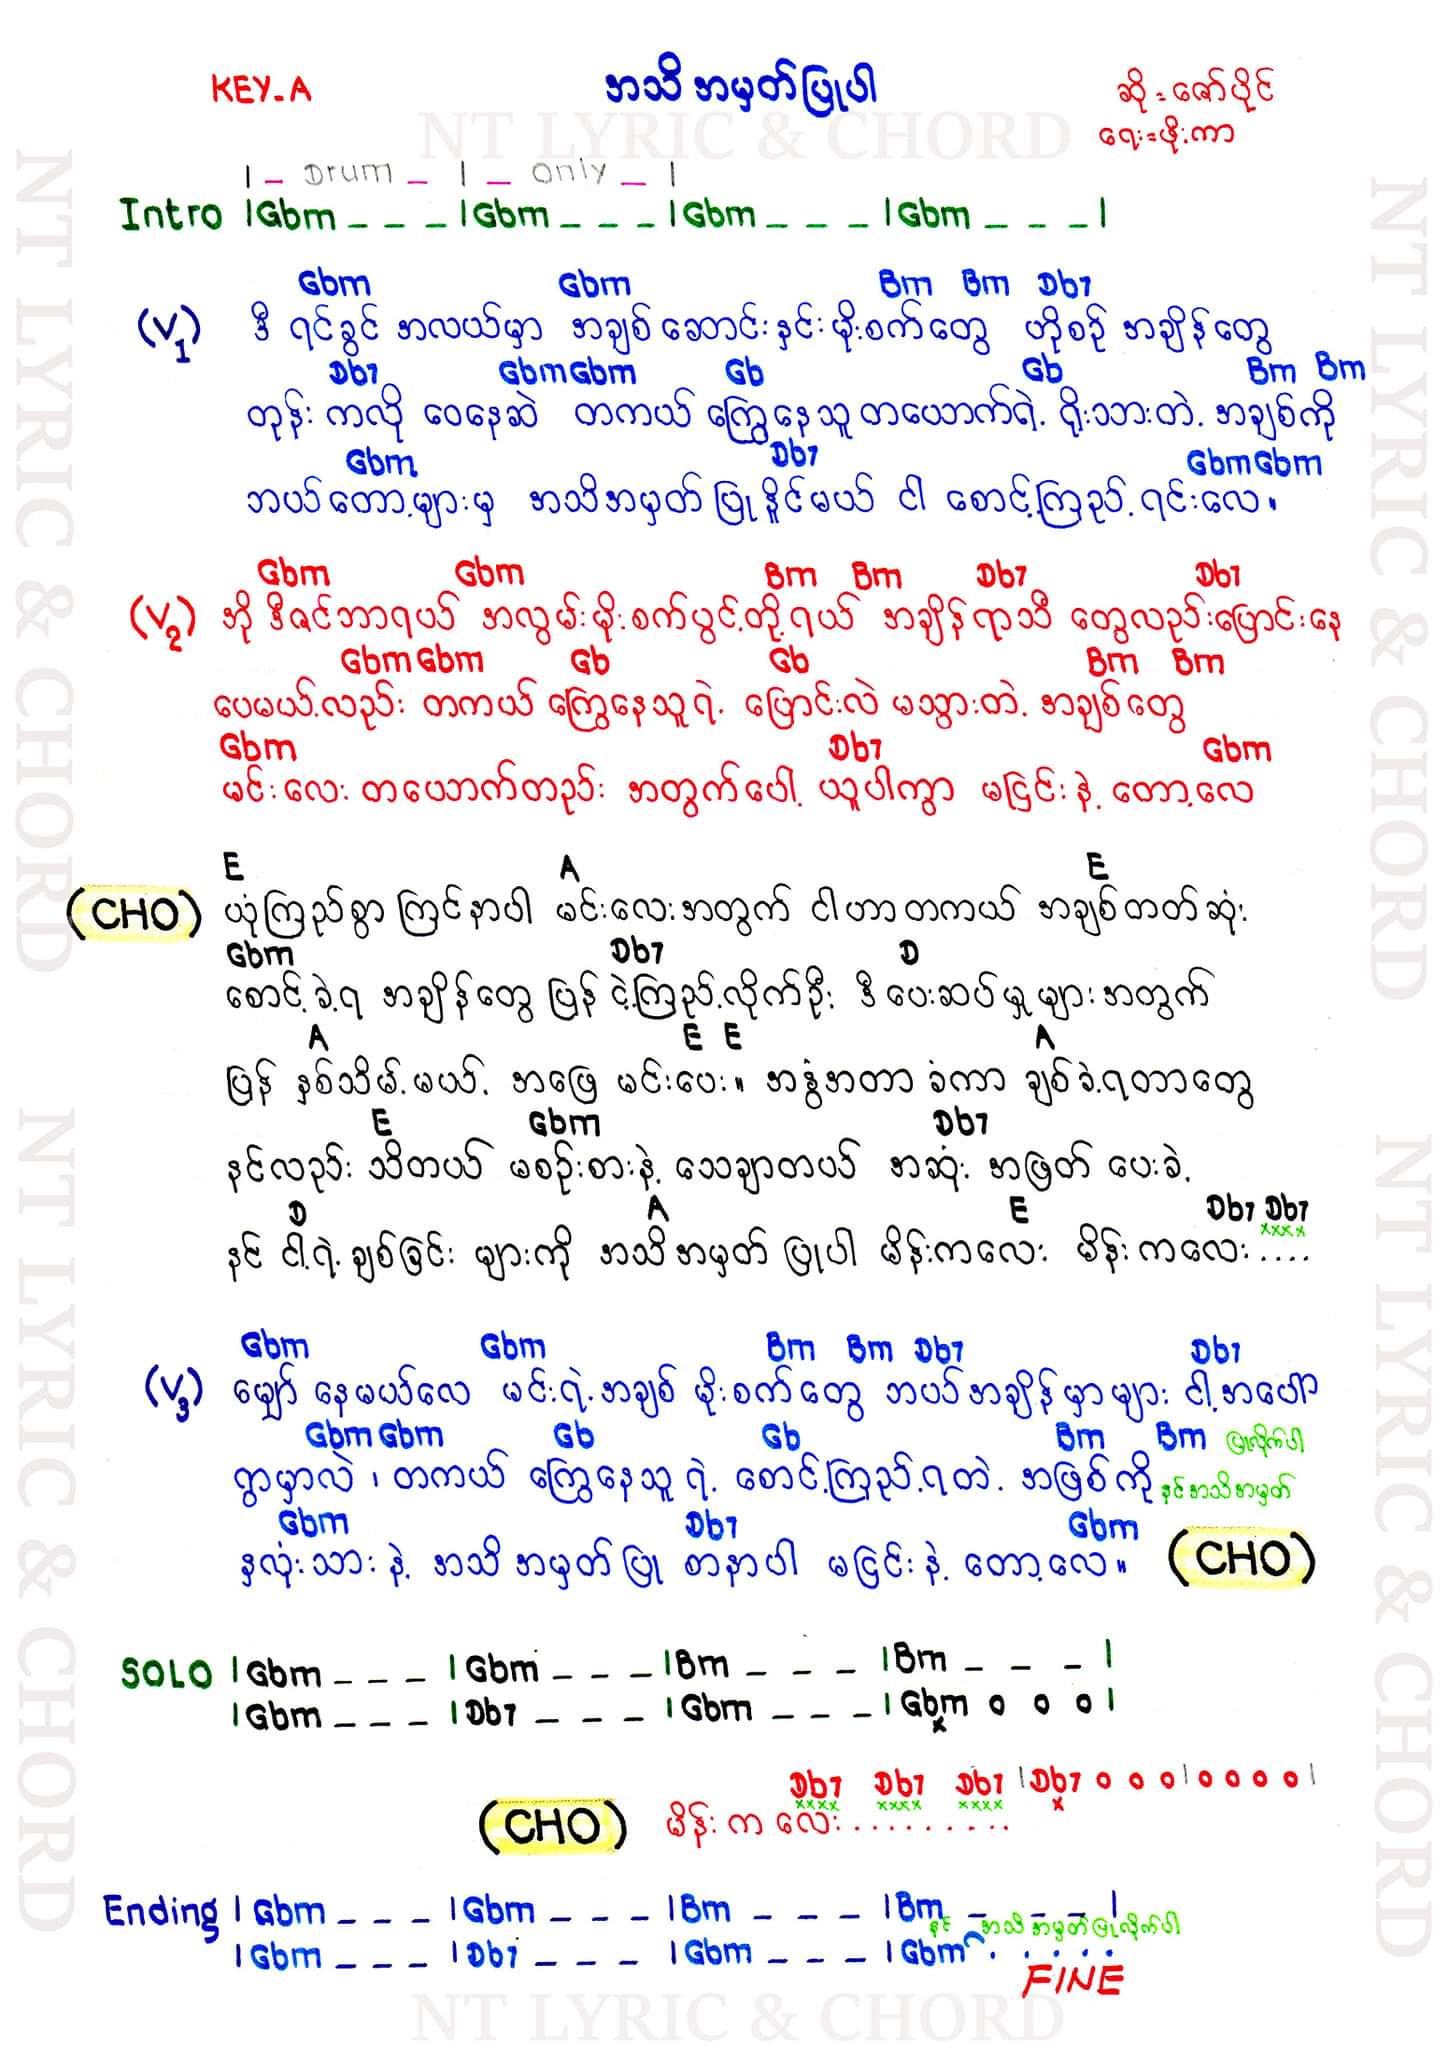 KEY-A
အသိအမှတ်ပြုပါ
ဆို = ဇော်ပိုင်
ရေး = ဖိုးကာ
NT LYRIC & CHORD
| _ Drum _ | _ Only _ |
Intro |Gbm _ _ _ |Gbm _ _ _ |Gbm _ _ _ |Gbm _ _ _ |
Gbm Gbm Bm Bm Db7
(V1) ဒီ ရင်ခွင် အလယ်မှာ အချစ် ဆောင်းနှင်းမိုးစက်တွေ ဟိုစဉ် အချိန်တွေ
Db7 Gbm Gbm Gb Gb Bm Bm
တုန်းကလို ဝေနေဆဲ တကယ် ကြွေနေသူတယောက်ရဲ့ ရိုးသားတဲ့ အချစ်ကို
Gbm Db7 Gbm Gbm
ဘယ်တော့များမှ အသိအမှတ်ပြုနိုင်မယ် ငါ စောင့်ကြည့်ရင်းလေ။
Gbm Gbm Bm Bm Db7 Db7
(V2) အို ဒီဇင်ဘာရယ် အလွမ်းမိုးစက်ပွင့်တို့ရယ် အချိန်ရာသီ တွေလည်းပြောင်းနေ
Gbm Gbm Gb Gb Bm Bm
ပေမယ့်လည်း တကယ် ကြွေနေသူရဲ့ ပြောင်းလဲ မသွားတဲ့ အချစ်တွေ
Gbm Db7 Gbm
မင်းလေး တယောက်တည်း အတွက်ပေါ့ ယူပါကွာ မငြင်းနဲ့ တော့လေ
E A E
(CHO) ယုံကြည်စွာ ကြင်နာပါ မင်းလေးအတွက် ငါဟာတကယ် အချစ်တတ်ဆုံး
Gbm Db7 D
စောင့်ခဲ့ရ အချိန်တွေ ပြန် ငဲ့ကြည့်လိုက်ဦး ဒီပေးဆပ်မှုများအတွက်
A E E A
ပြန် နှစ်သိမ့်မယ့် အဖြေ မင်းပေး။ အနွံအတာ ခံကာ ချစ်ခဲ့ရတာတွေ
E Gbm Db7
နင်လည်း သိတယ် မစဉ်းစားနဲ့ သေချာတယ် အဆုံး အဖြတ် ပေးခဲ့
D A E Db7 Db7
xxxx
နင် ငါ့ရဲ့ ချစ်ခြင်း များကို အသိအမှတ် ပြုပါ မိန်းကလေး မိန်းကလေး ....
Gbm Gbm Bm Bm Db7 Db7
(V3) မျှော် နေမယ်လေ မင်းရဲ့အချစ် မိုးစက်တွေ ဘယ်အချိန်မှာများ ငါ့အပေါ်
Gbm Gbm Gb Gb Bm Bm ပြုလိုက်ပါ
ရွာမှာလဲ ၊ တကယ် ကြွေနေသူ ရဲ့ စောင့်ကြည့်ရတဲ့ အဖြစ်ကို နင်အသိအမှတ်
Gbm Db7 Gbm
နှလုံးသားနဲ့ အသိအမှတ်ပြု စာနာပါ မငြင်းနဲ့ တော့လေ။ (CHO)
SOLO |Gbm _ _ _ |Gbm _ _ _ |Bm _ _ _ |Bm _ _ _ |
|Gbm _ _ _ |Db7 _ _ _ |Gbm _ _ _ |Gbm o o o|
x
Db7 Db7 Db7 |Db7 o o o|o o o o|
xxxx xxxx xxxx x
(CHO) မိန်းကလေး..........
Ending |Gbm _ _ _ |Gbm _ _ _ |Bm _ _ _ |Bm _ _ _ |
နင် အသိအမှတ်ပြုလိုက်ပါ
|Gbm _ _ _ |Db7 _ _ _ |Gbm _ _ _ |Gbm . . . . .
FINE
NT LYRIC & CHORD
NT LYRIC & CHORD
NT LYRIC & CHORD
NT LYRIC & CHORD
NT LYRIC & CHORD
NT LYRIC & CHORD